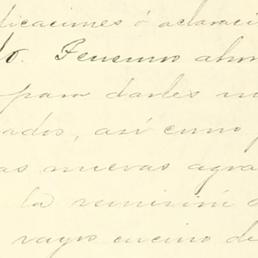 dicaciones ó aclaraci
do. Tensum ahor
para darles un
ados, así como p
as nuevas agra
la remisión d
rayos encima de